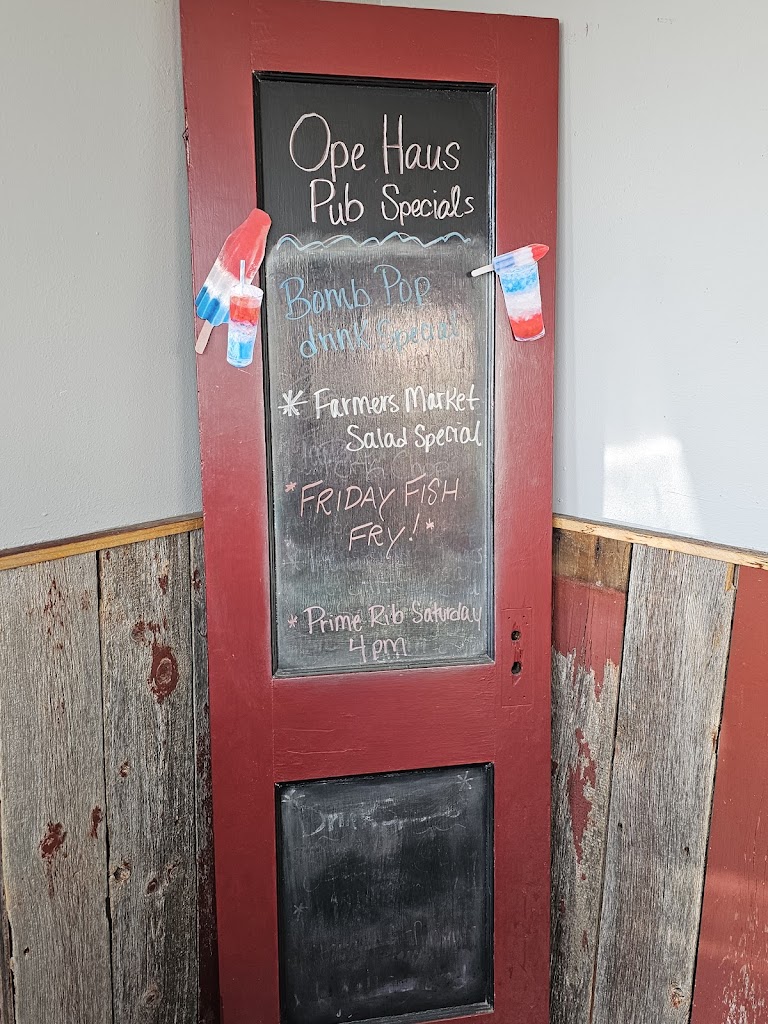 Ope Haus
Pub Specials
Bomb Pop
drink Special
* Farmers Market
Salad Special
*FRIDAY FISH
FRY!*
* Prime Rib Saturday
4pm